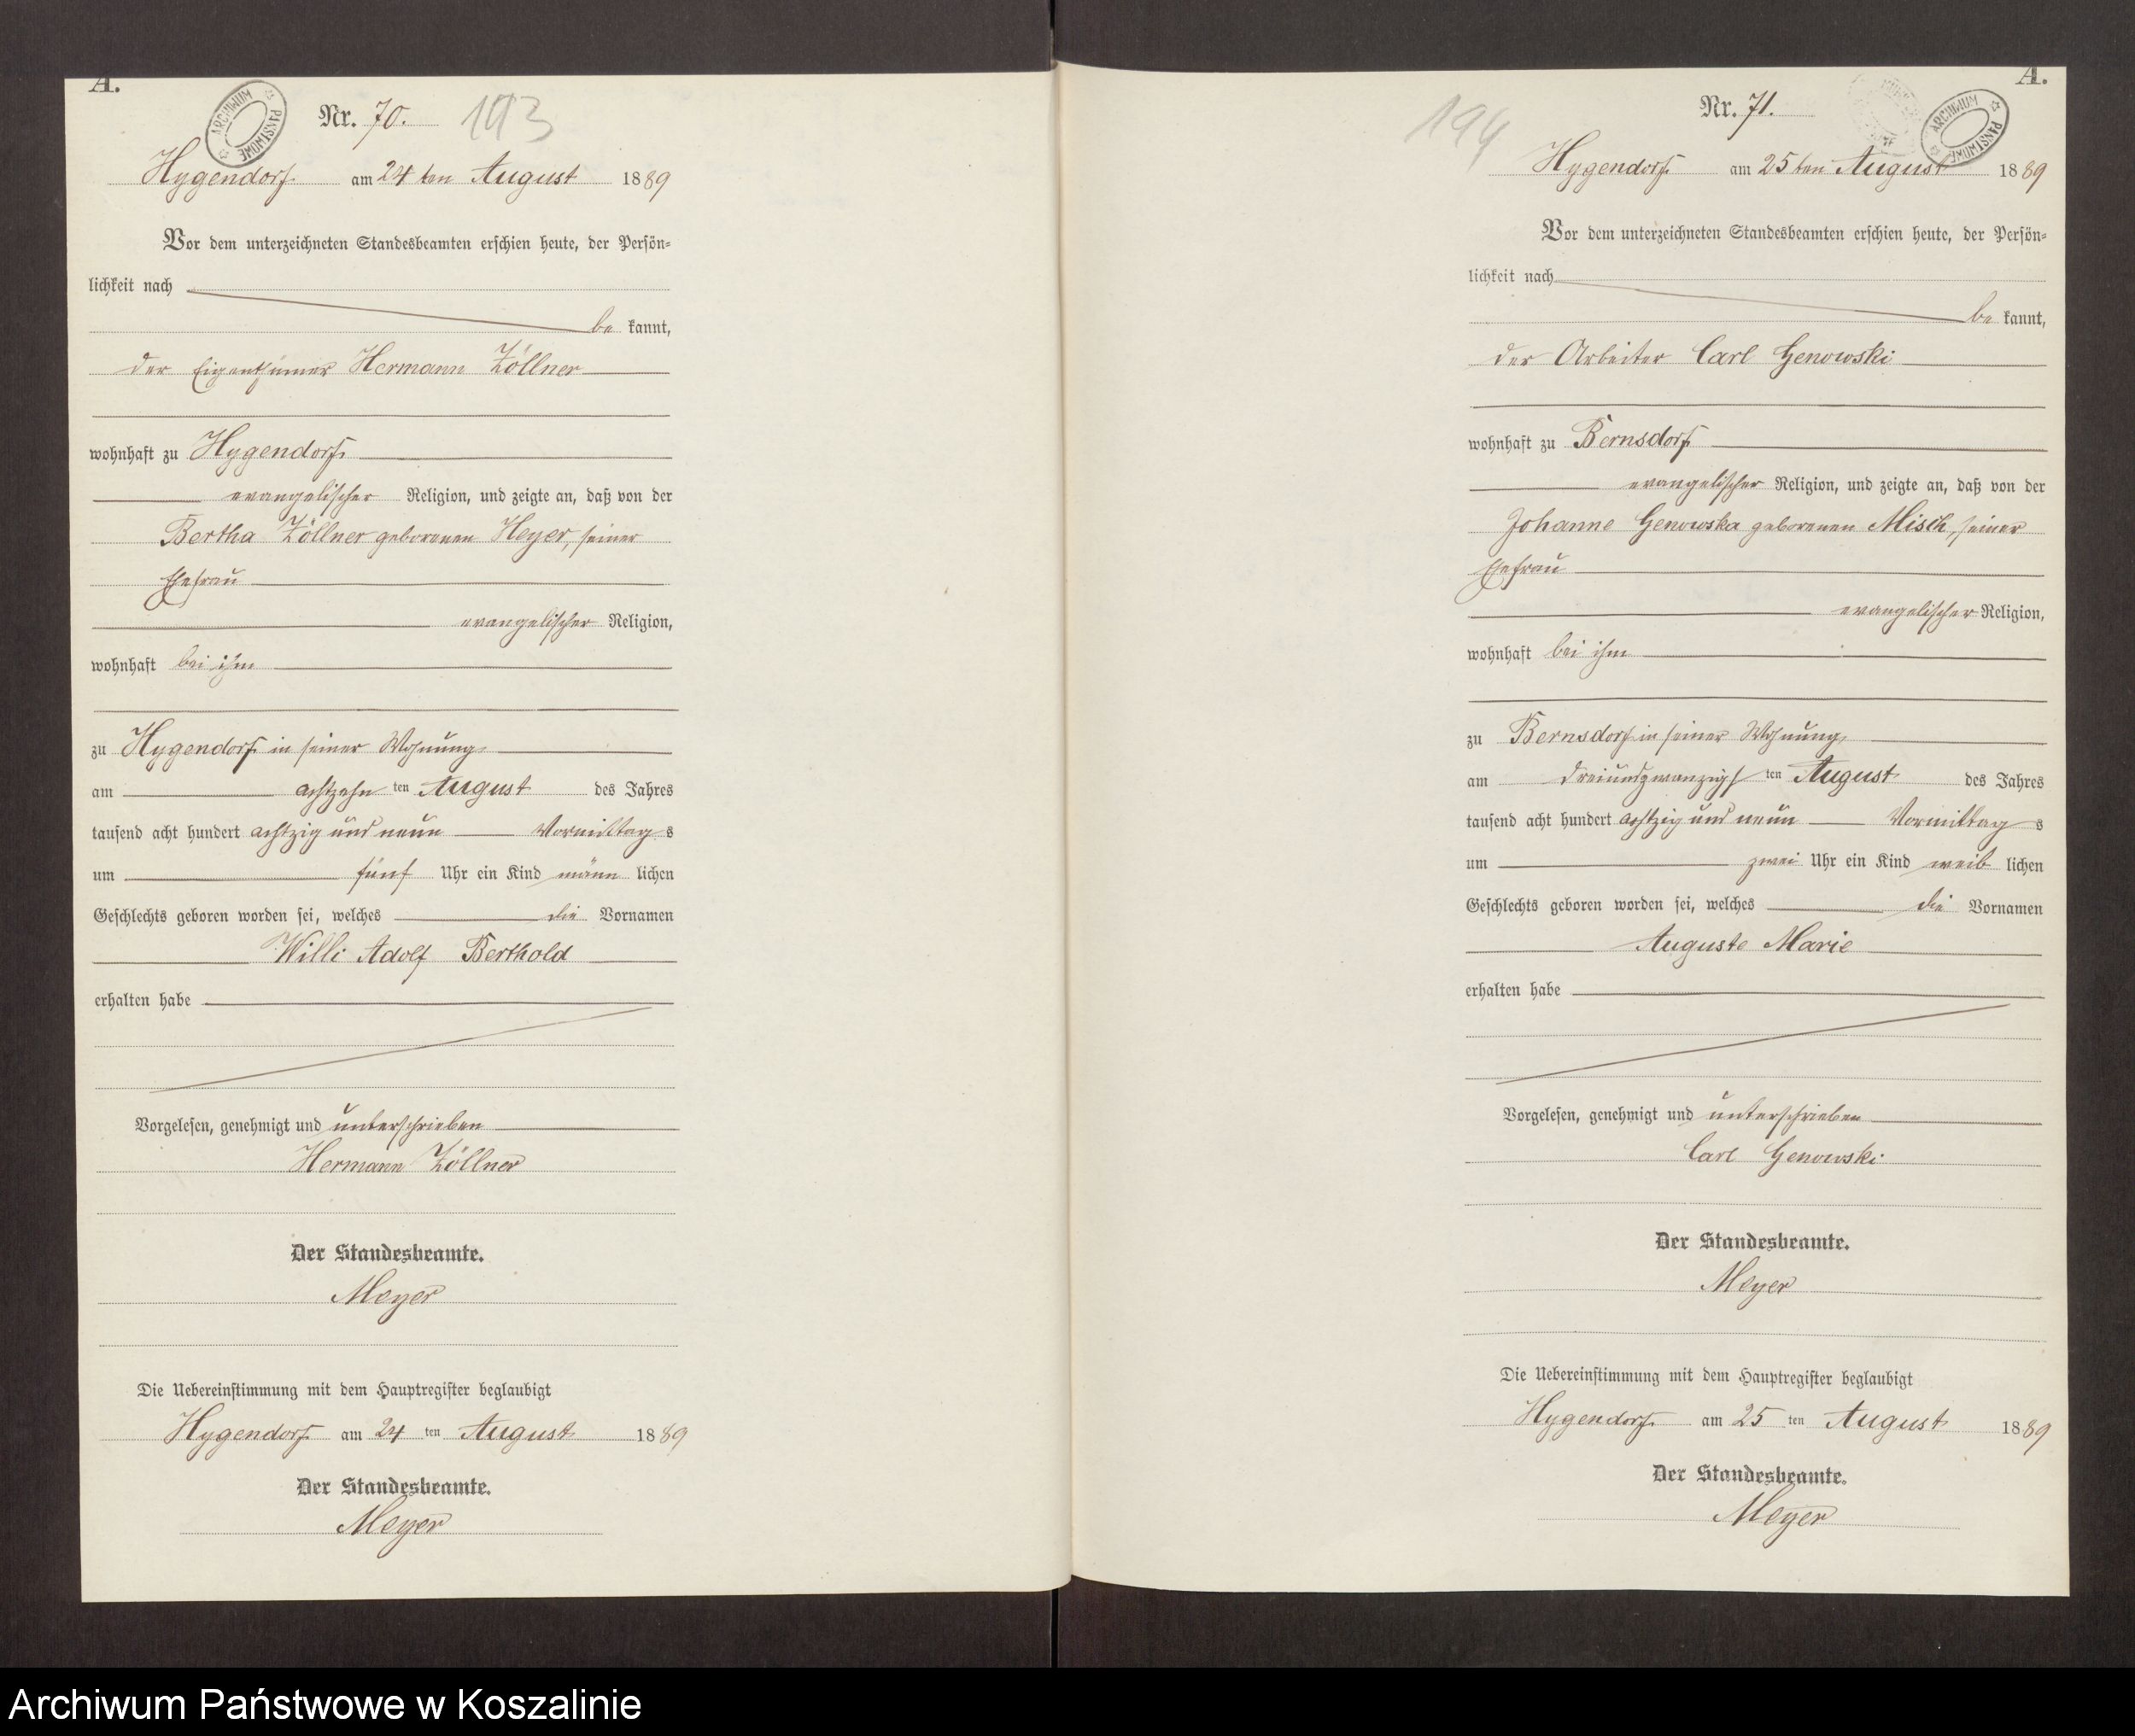 A.
ARCHIWUM PAŃSTWOWE
Nr. 70. 193
Hygendorf am 24 ten August 1889
Vor dem unterzeichneten Standesbeamten erschien heute, der Persön=
lichkeit nach
be kannt,
der Eigenthümer Hermann Zöllner
wohnhaft zu Hygendorf
evangelischer Religion, und zeigte an, daß von der
Bertha Zöllner geborenen Heyer, seiner
Ehefrau
evangelischer Religion,
wohnhaft bei ihm
zu Hygendorf in seiner Wohnung
am achtzehn ten August des Jahres
tausend acht hundert achtzig und neun Vormittag s
um fünf Uhr ein Kind männ lichen
Geschlechts geboren worden sei, welches die Vornamen
Willi Adolf Berthold
erhalten habe
Vorgelesen, genehmigt und unterschrieben
Hermann Zöllner
Der Standesbeamte.
Meyer
Die Uebereinstimmung mit dem Hauptregister beglaubigt
Hygendorf am 24 ten August 1889
Der Standesbeamte.
Meyer
A.
ARCHIWUM PAŃSTWOWE
194 Nr. 71.
Hygendorf am 25 ten August 1889
Vor dem unterzeichneten Standesbeamten erschien heute, der Persön=
lichkeit nach
be kannt,
der Arbeiter Carl Genowski
wohnhaft zu Bernsdorf
evangelischer Religion, und zeigte an, daß von der
Johanne Genowska geborenen Misch, seiner
Ehefrau
evangelischer Religion,
wohnhaft bei ihm
zu Bernsdorf in seiner Wohnung,
am dreiundzwanzigs ten August des Jahres
tausend acht hundert achtzig und neun Vormittag s
um zwei Uhr ein Kind weib lichen
Geschlechts geboren worden sei, welches die Vornamen
Auguste Marie
erhalten habe
Vorgelesen, genehmigt und unterschrieben
Carl Genowski
Der Standesbeamte.
Meyer
Die Uebereinstimmung mit dem Hauptregister beglaubigt
Hygendorf am 25 ten August 1889
Der Standesbeamte.
Meyer
Archiwum Państwowe w Koszalinie